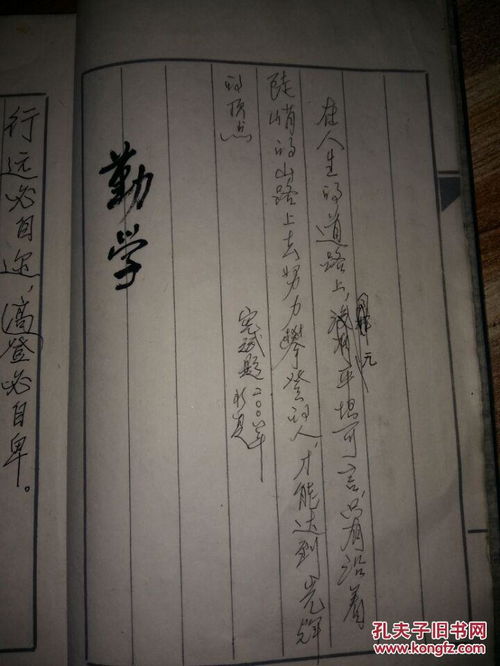 在人生的道路上,没有平坦可言,只有沿着
陡峭的山路上去努力攀登的人,才能达到光辉
的顶点
题二〇〇六年
勤学
行远必自迩,高登必自卑。
孔夫子旧书网
www.kongfz.com